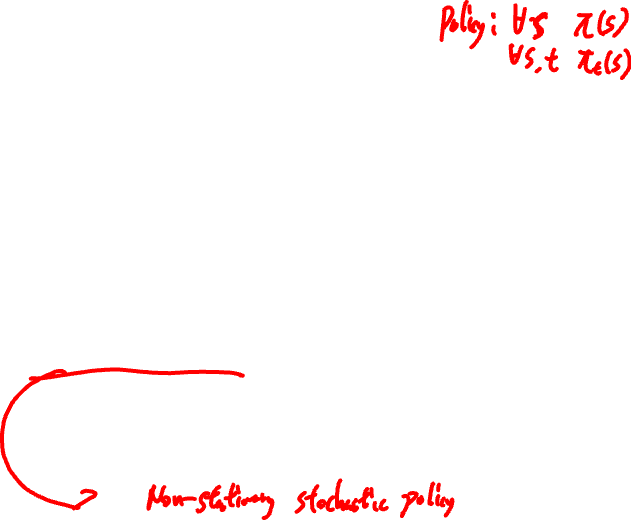 Policy: ∀s π(s)
∀s,t πₜ(s)
Non-stationary stochastic policy